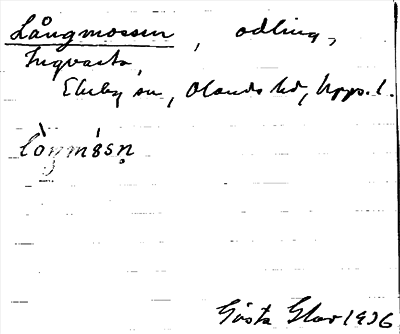 Långmossen, odling,
Ingvasta,
Ekeby sn, Olands hd, Upps. l.
Gösta Glav 1936